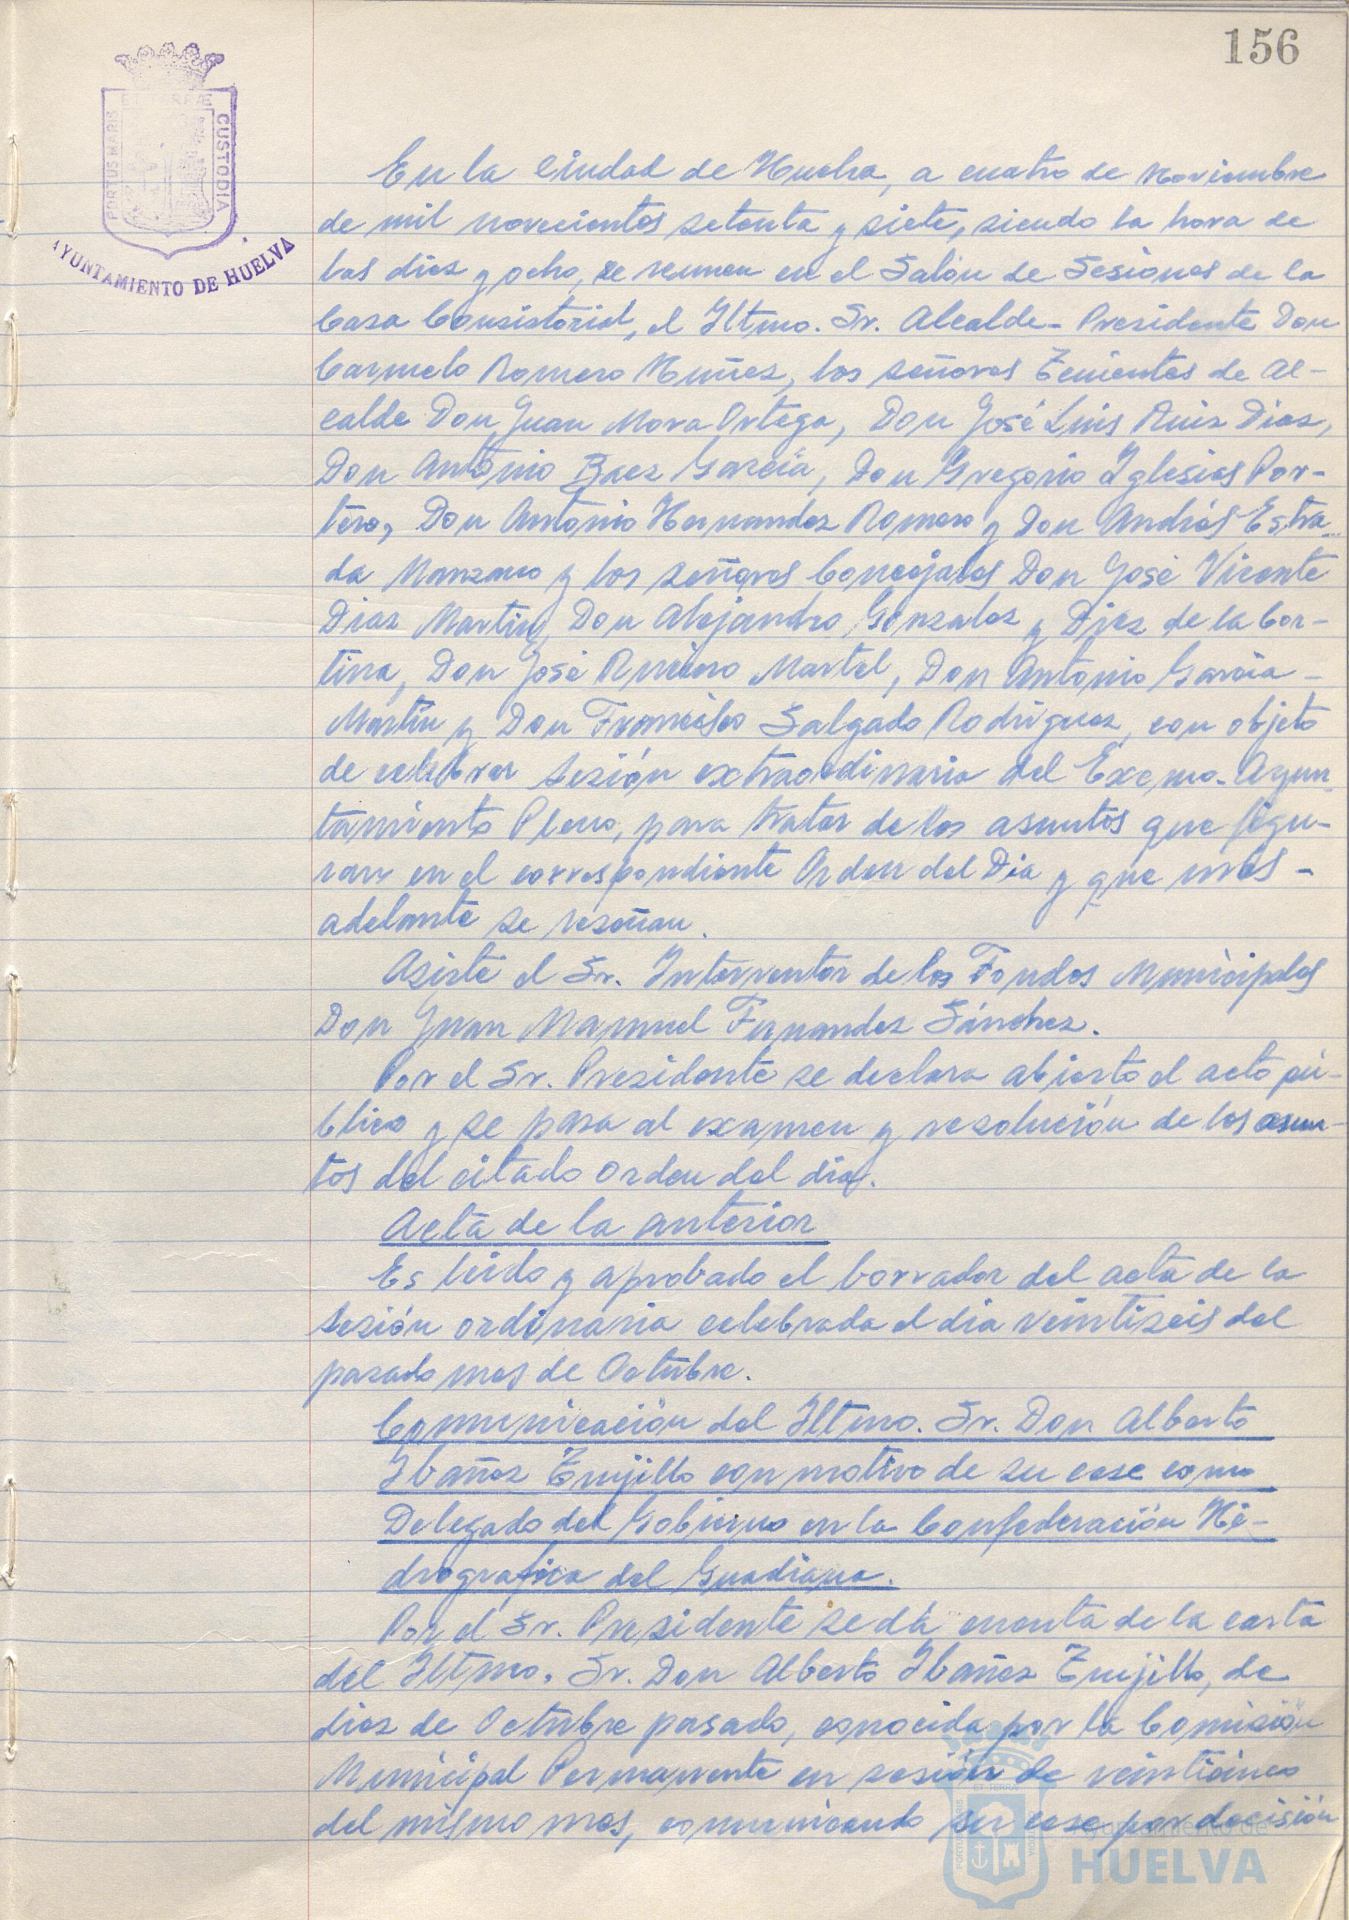 156
PORTUS MARIS
ET TERRAE
CUSTODIA
AYUNTAMIENTO DE HUELVA
En la Ciudad de Huelva, a cuatro de Noviembre
de mil novecientos setenta y siete, siendo la hora de
las diez y ocho, se reunen en el Salón de Sesiones de la
Casa Consistorial, el Iltmo. Sr. Alcalde-Presidente Don
Carmelo Romero Muñez, los señores Tenientes de Al-
calde Don Juan Mora Ortega, Don José Luis Ruiz Diaz,
Don Antonio Baez García, Don Gregorio Iglesias Por-
tero, Don Antonio Hernandez Romero y Don Andrés Estra-
da Manzano y los señores Concejales Don José Vicente
Diaz Martin, Don Alejandro Gonzalez y Diez de la Cor-
tina, Don José Romero Martel, Don Antonio García
Martín y Don Francisco Salgado Rodríguez, con objeto
de celebrar sesión extraordinaria del Excmo. Ayun-
tamiento Pleno, para tratar de los asuntos que figu-
ran en el correspondiente Orden del Dia y que mas
adelante se reseñan.
Asiste el Sr. Interventor de los Fondos Municipales
Don Juan Manuel Fernandez Sánchez.
Por el Sr. Presidente se declara abierto el acto pú-
blico y se pasa al examen y resolución de los asun-
tos del citado orden del dia.
Acta de la anterior
Es leido y aprobado el borrador del acta de la
sesión ordinaria celebrada el dia veintiseis del
pasado mes de Octubre.
Comunicación del Iltmo. Sr. Don Alberto
Ibañez Trujillo con motivo de su cese como
Delegado del Gobierno en la Confederación Hi-
drografica del Guadiana.
Por el Sr. Presidente se dá cuenta de la carta
del Iltmo. Sr. Don Alberto Ibañez Trujillo, de
diez de Octubre pasado, conocida por la Comisión
Municipal Permanente en sesión de veinticinco
del mismo mes, comunicando su cese por decisión
Ayuntamiento de
HUELVA